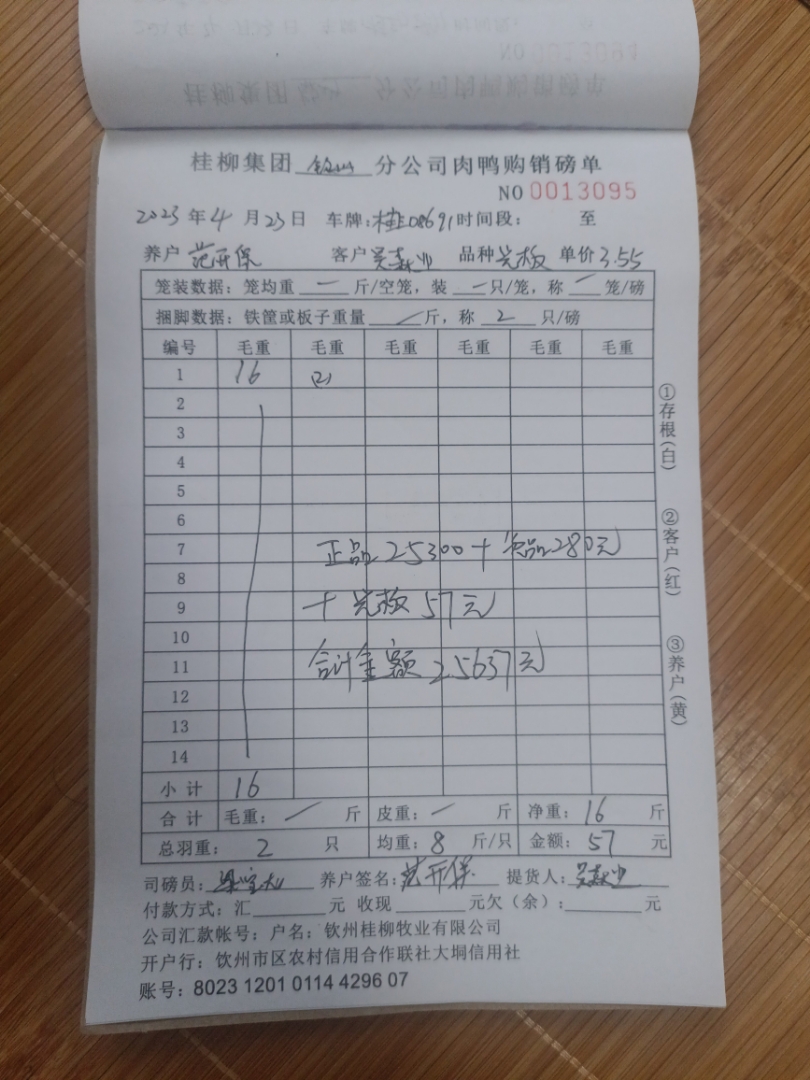 桂柳集团 钦州 分公司肉鸭购销磅单
NO 0013095
2023年4月23日 车牌:桂E08691 时间段: 至
养户 范开保 客户 吴业 品种 光板 单价 3.55
笼装数据: 笼均重 一 斤/空笼, 装 一 只/笼, 称 一 笼/磅
捆脚数据: 铁筐或板子重量 / 斤, 称 2 只/磅
编号 毛重 毛重 毛重 毛重 毛重 毛重
1 16 (2)
2
3
4
5
6
7 正品25300+次品280元
8
9 +光板57元
10
11 合计金额25637元
12
13
14
小计 16
合计 毛重: / 斤 皮重: / 斤 净重: 16 斤
总羽重: 2 只 均重: 8 斤/只 金额: 57 元
司磅员: 养户签名: 范开保 提货人: 吴业
付款方式: 汇 元 收现 元欠(余): 元
公司汇款帐号: 户名: 钦州桂柳牧业有限公司
开户行: 钦州市区农村信用合作联社大垌信用社
账号: 8023 1201 0114 4296 07
①存根(白)
②客户(红)
③养户(黄)